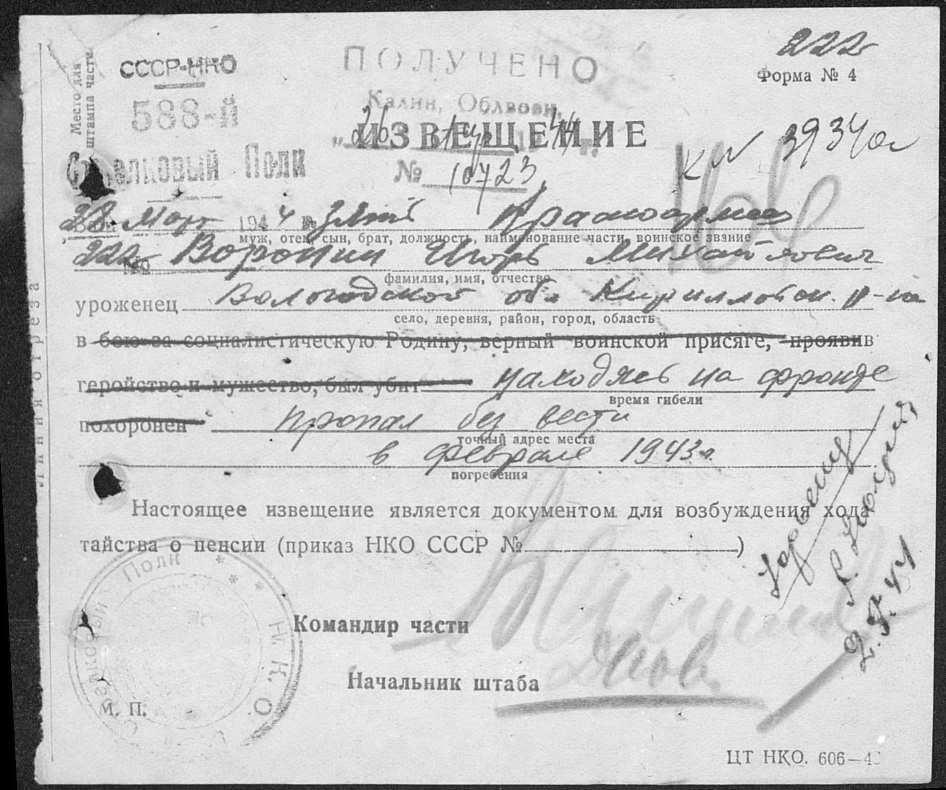 222
Форма № 4
Место для
штампа части
СССР-НКО
588
Стрелковый Полк
ПОЛУЧЕНО
Калин. Облвоен
ИЗВЕЩЕНИЕ
№ 10723
3934
28 март 1944 г. зять Красноармеец
муж, отец, сын, брат, должность, наименование части, воинское звание
222 Воронин Игорь Михайлович
фамилия, имя, отчество
уроженец Вологодской обл Кирилловск. р-на
село, деревня, район, город, область
в бою за социалистическую Родину, верный воинской присяге, проявив
геройство и мужество, был убит находясь на фронте
время гибели
похоронен пропал без вести
точный адрес места
в феврале 1943г.
погребения
Настоящее извещение является документом для возбуждения хода-
тайства о пенсии (приказ НКО СССР № )
Командир части
Начальник штаба
Стрелковый Полк * * * Н.К.О.
М. П.
Линия отреза
ЦТ НКО. 606—4